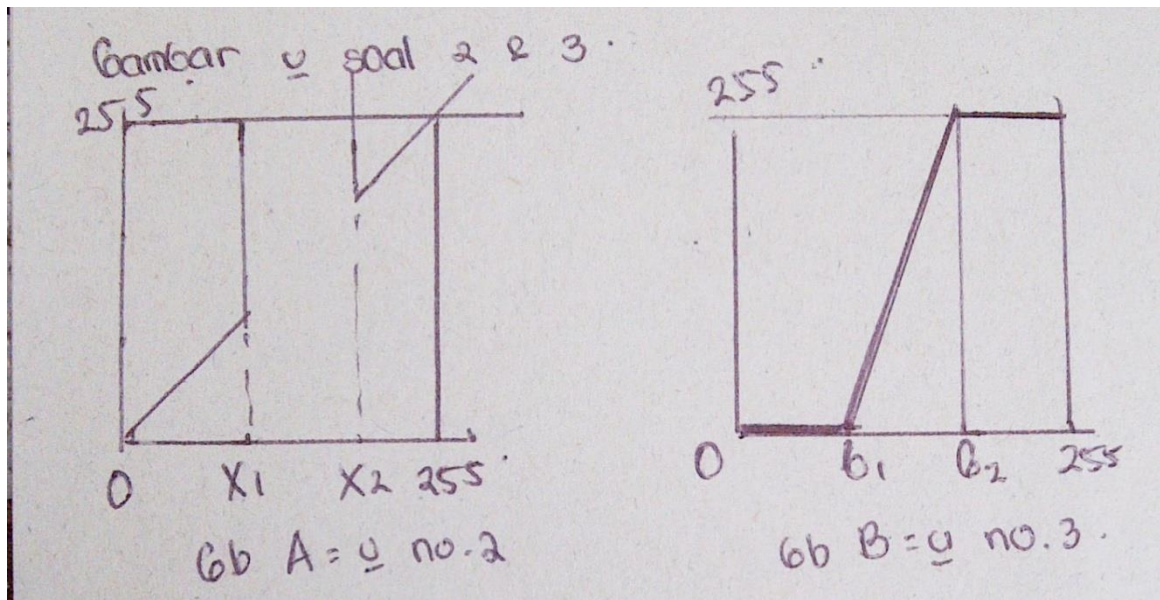 Gambar u soal 2 & 3.
255
0 X1 X2 255
Gb A = u no.2
255
0 G1 G2 255
Gb B = u no.3.